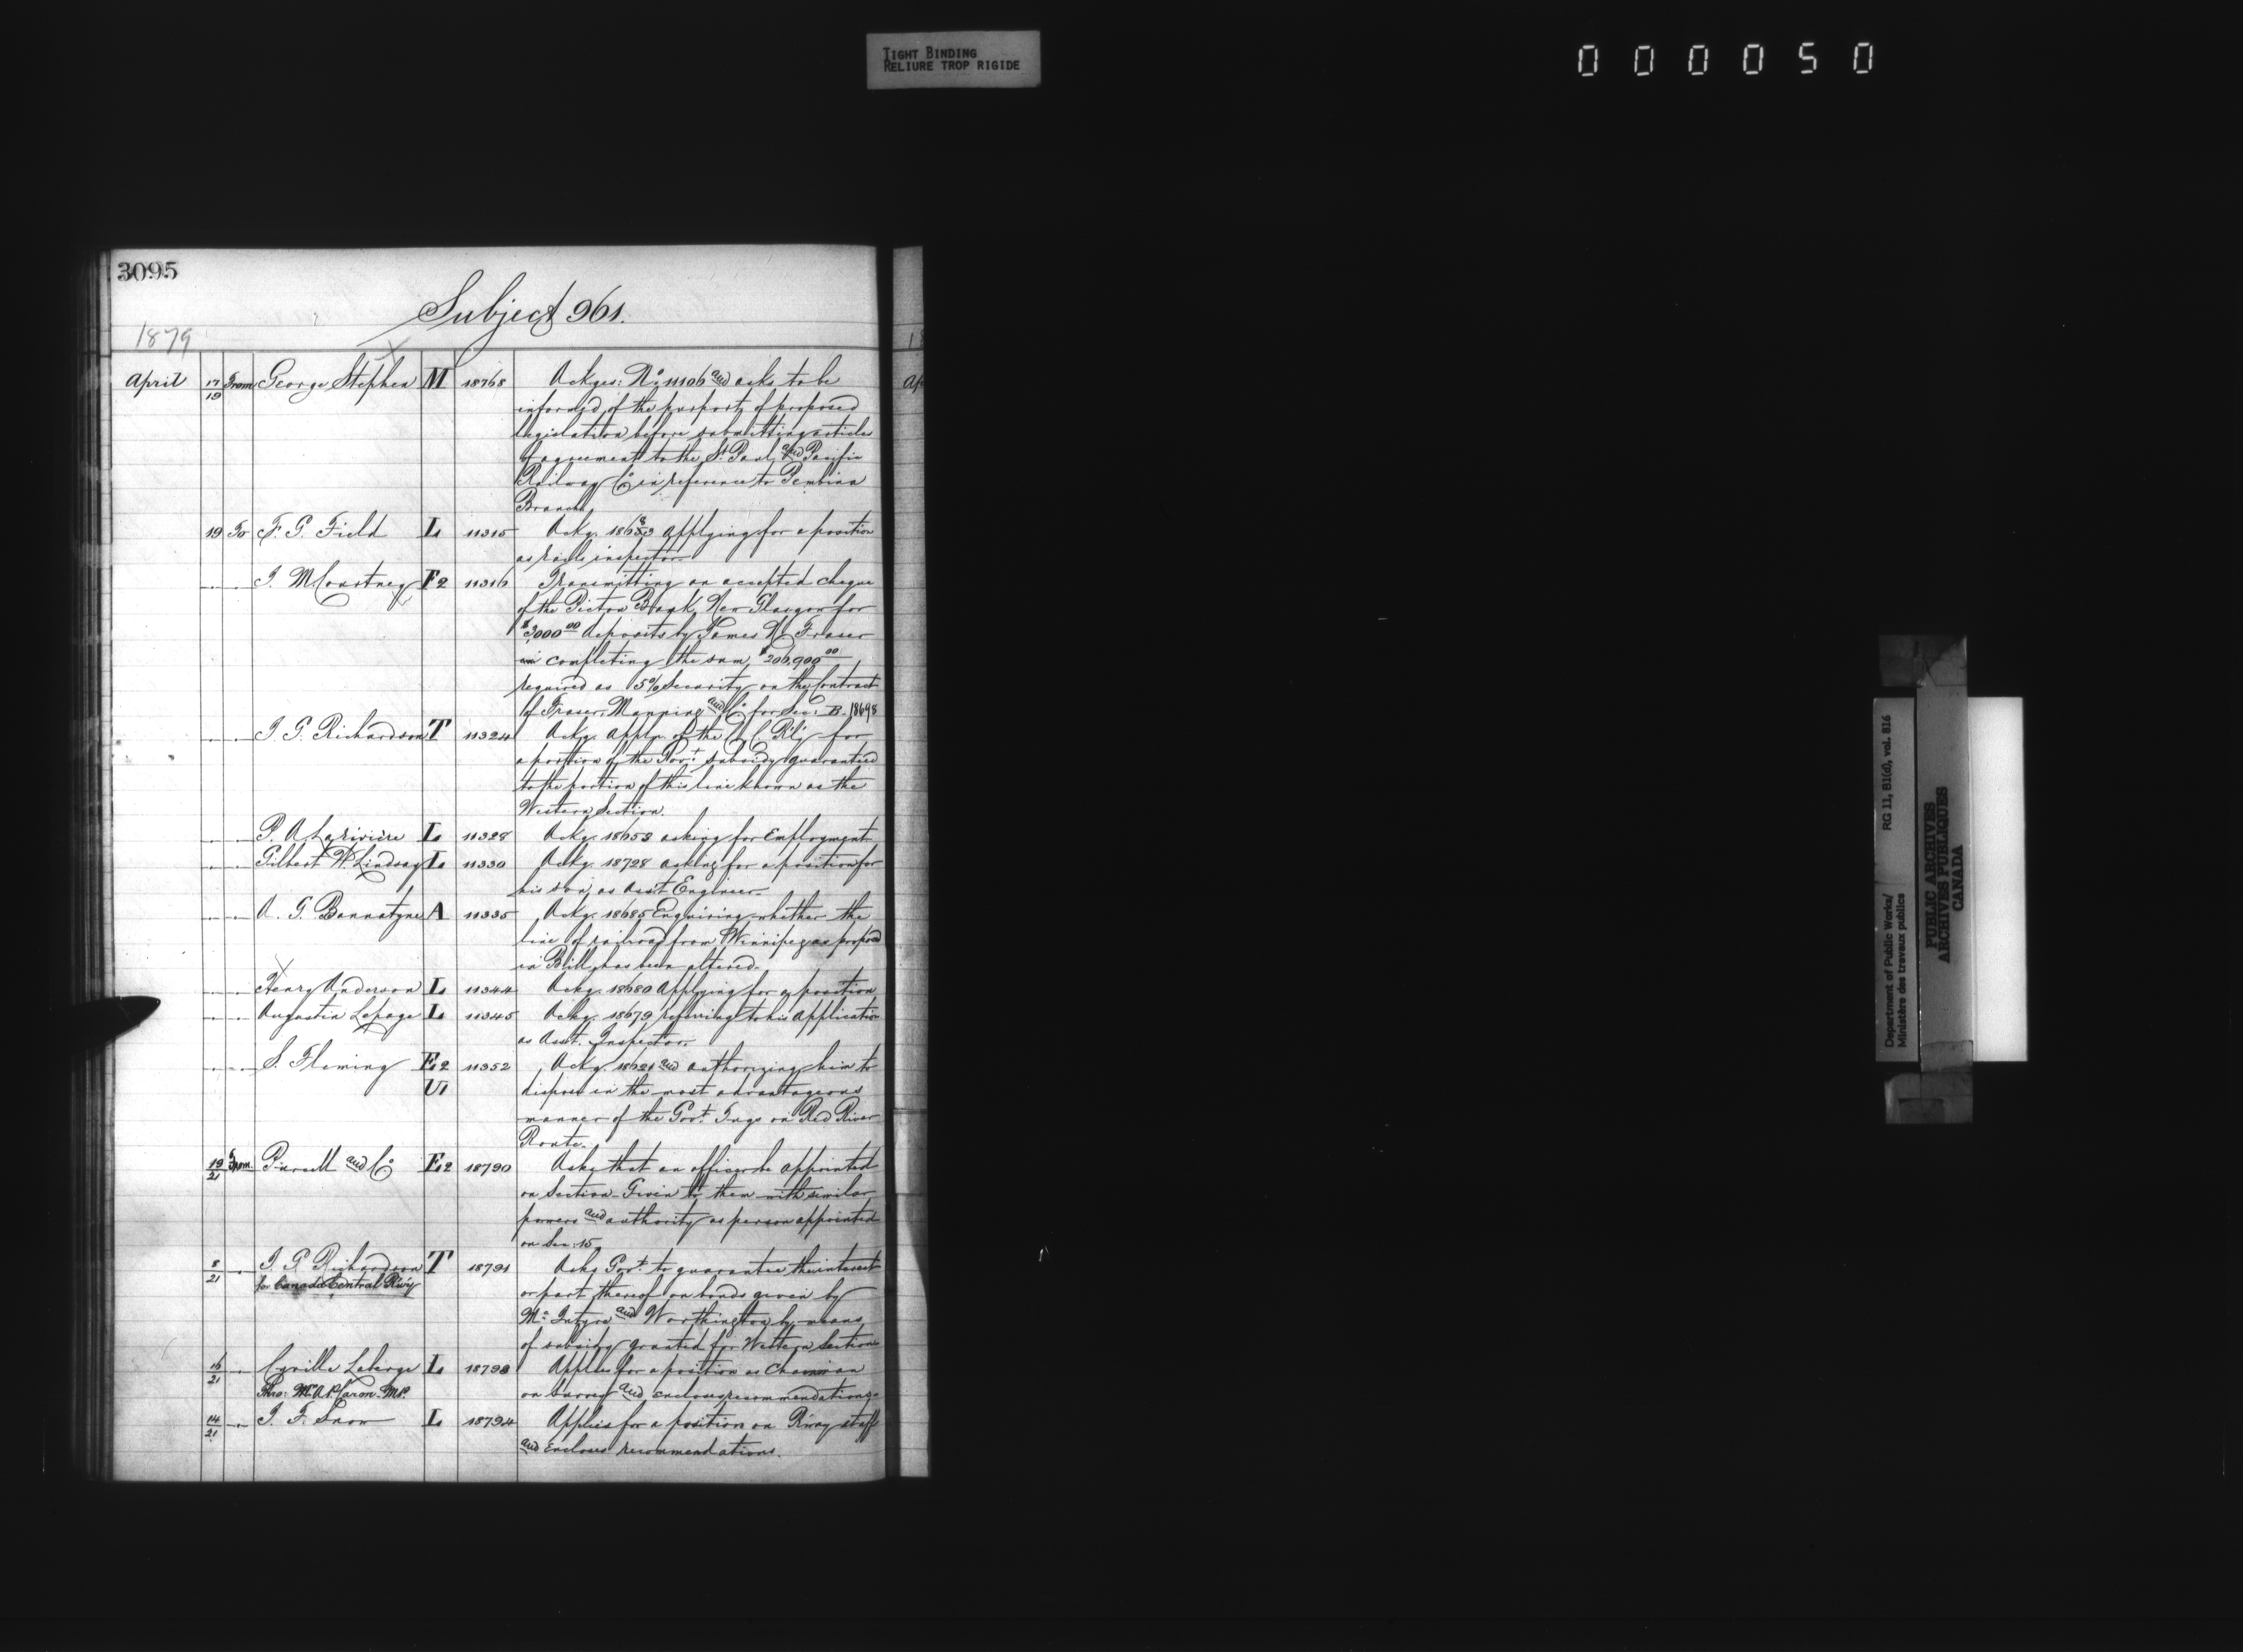 TIGHT BINDING
RELIURE TROP RIGIDE
000050
3095
Subject 961.
1879
April 17/19 From George Stephen M 18768 Ackges: No 11106 and asks to be
informed of the purport of proposed
legislation before submitting articles
of agreement to the St. Paul and Pacific
Railway Co in reference to Pembina
Branch
19 To F. G. Field L 11315 Ackg. 18683 applying for a position
as rails inspector
J. M Courtney F2 11316 Transmitting an accepted cheque
of the Pictou Bank New Glasgow for
$3,000 00 deposits by James H. Fraser
in completing the sum, $206,900 00
required as 5% Security on the Contract
of Fraser, Manning and Co for Sec: B. 18698
J. G. Richardson T 11324 Ackg. appln. of the C. C. Rly for
a portion of the Govt subsidy guaranteed
to the portion of this line known as the
Western Section.
P. A Lariviere L 11328 Ackg. 18653 asking for Employment
Gilbert W. Lindsay L 11330 Ackg. 18728 asking for a position for
his son, as Asst Engineer
A. G. Bannatyne A 11335 Ackg. 18685 Enquiring whether the
line of railroad from Winnipeg as proposed
in Bill, has been altered.
Henry Anderson L 11344 Ackg. 18680 Applying for a position
Augustin Lepage L 11345 Ackg. 18679 referring to his Application
as Asst. Inspector.
S. Fleming E2 11352 Ackg. 18621 and authorizing him to
U1 dispose in the most advantageous
manner of the Govt. Tugs on Red River
Route.
19/21 From Purcell and Co E2 18790 Asks that an officer be appointed
on Section Given to them with similar
powers and authority as person appointed
on Sec: 15
8/21 J. G. Richardson T 18791 Asks Govt. to guarantee the interest
for Canada Central Rwy or part thereof on bonds given by
Mc Intyre and Worthington by means
of subsidy granted for Western Section
16/21 Cyrille Laberge L 18793 Applies for a position as Chainman
Thro: Mr A P. Caron. MP. on Survey and encloses recommendations
14/21 J. F. Snow L 18794 Applies for a position on Rway staff
and Encloses recommendations.
Department of Public Works/
Ministère des travaux publics
RG 11, B1(d), vol. 816
PUBLIC ARCHIVES
ARCHIVES PUBLIQUES
CANADA